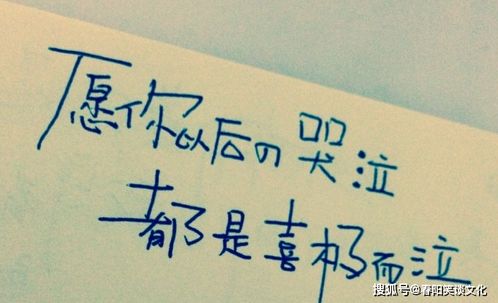 愿你以后の哭泣
都是喜极而泣
搜狐号@春阳笑谈文化